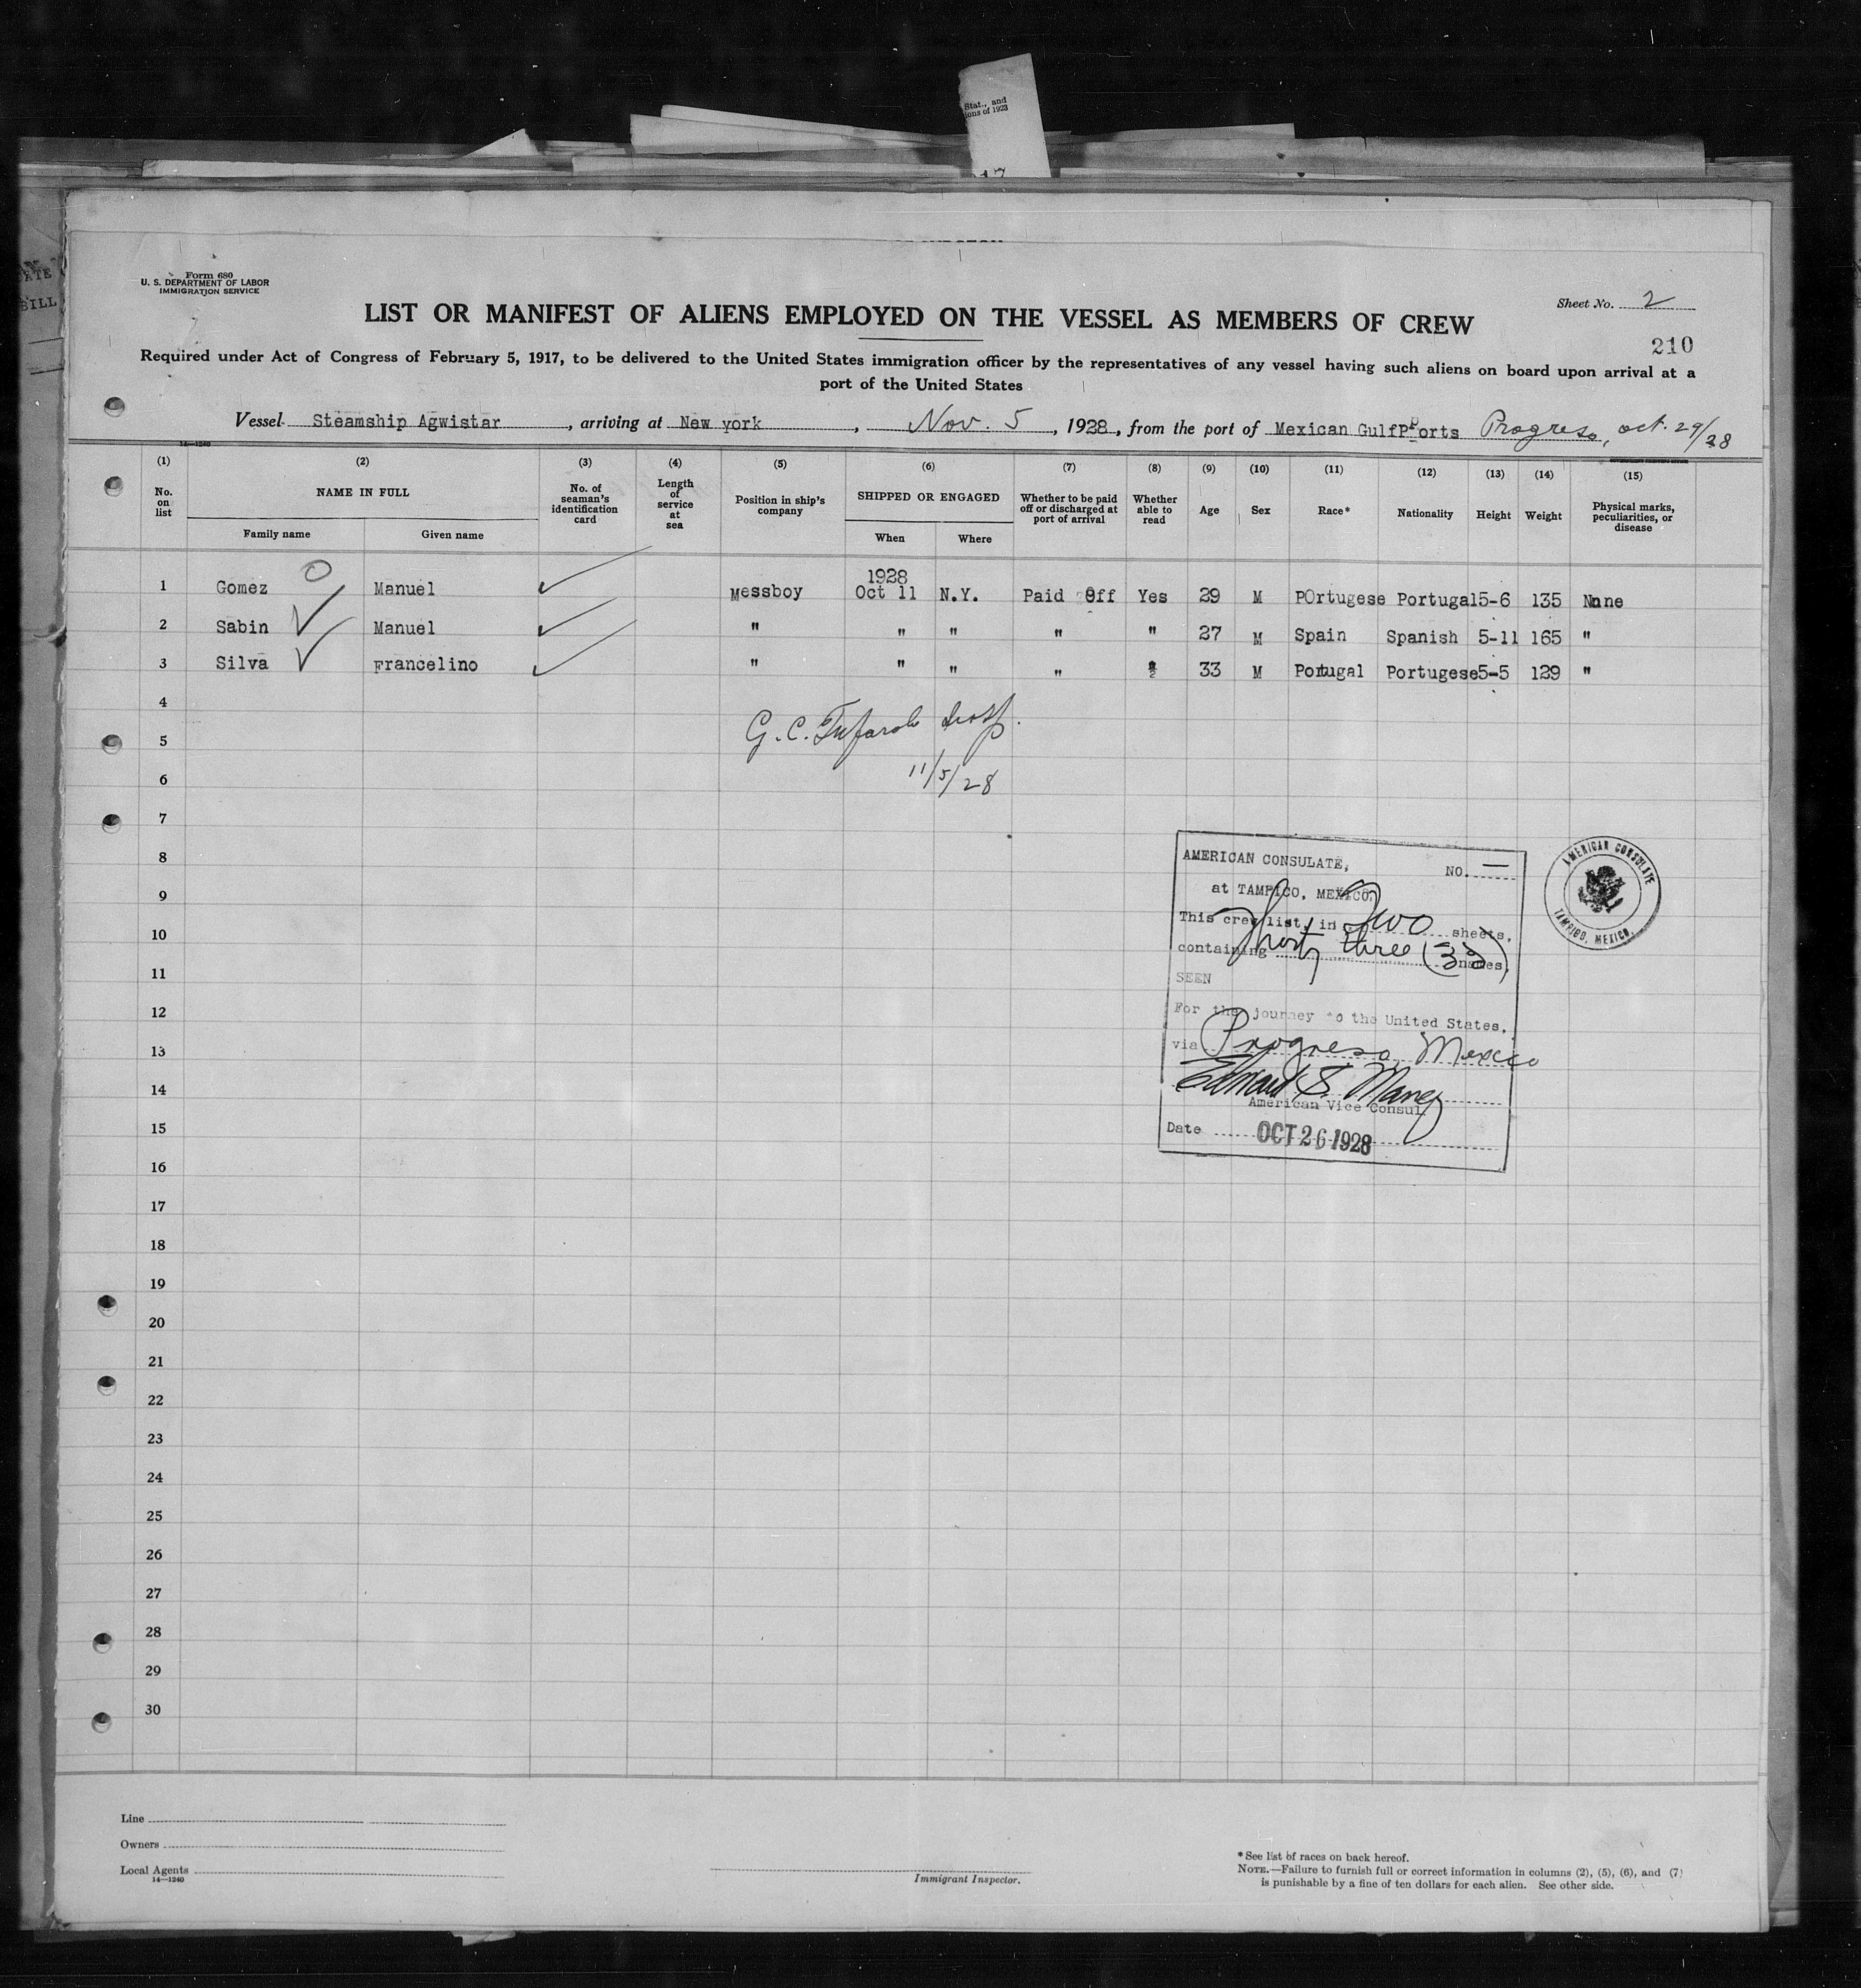 Stat., and
ions of 1923
17
ATE
BILL
Form 680
U. S. DEPARTMENT OF LABOR
IMMIGRATION SERVICE
Sheet No. 2
LIST OR MANIFEST OF ALIENS EMPLOYED ON THE VESSEL AS MEMBERS OF CREW
210
Required under Act of Congress of February 5, 1917, to be delivered to the United States immigration officer by the representatives of any vessel having such aliens on board upon arrival at a
port of the United States
Vessel Steamship Agwistar, arriving at New york, Nov. 5, 1928, from the port of Mexican GulfPorts Progreso, oct. 29/28
14—1240
(1) (2) (3) (4) (5) (6) (7) (8) (9) (10) (11) (12) (13) (14) (15)
No. on list
NAME IN FULL
Family name
Given name
No. of seaman's identification card
Length of service at sea
Position in ship's company
SHIPPED OR ENGAGED
When
Where
Whether to be paid off or discharged at port of arrival
Whether able to read
Age
Sex
Race*
Nationality
Height
Weight
Physical marks, peculiarities, or disease
1928
1 Gomez Manuel Messboy Oct 11 N.Y. Paid Off Yes 29 M POrtugese Portugal 5-6 135 None
2 Sabin Manuel " " " " " 27 M Spain Spanish 5-11 165 "
3 Silva Francelino " " " " " 33 M Portugal Portugese 5-5 129 "
4
G. C.
5
6
11/5/28
7
8
9
10
11
12
13
14
15
16
17
18
19
20
21
22
23
24
25
26
27
28
29
30
AMERICAN CONSULATE, NO. —
at TAMPICO, MEXICO.
This crew list, in Two sheets,
containing Thirty three (33) names,
SEEN
For the journey to the United States,
via Progreso, Mexico
Edward S. Maney
American Vice Consul
Date OCT 26 1928
AMERICAN CONSULATE
TAMPICO, MEXICO.
Line
Owners
Local Agents
14—1240
Immigrant Inspector.
* See list of races on back hereof.
NOTE.—Failure to furnish full or correct information in columns (2), (5), (6), and (7)
is punishable by a fine of ten dollars for each alien. See other side.